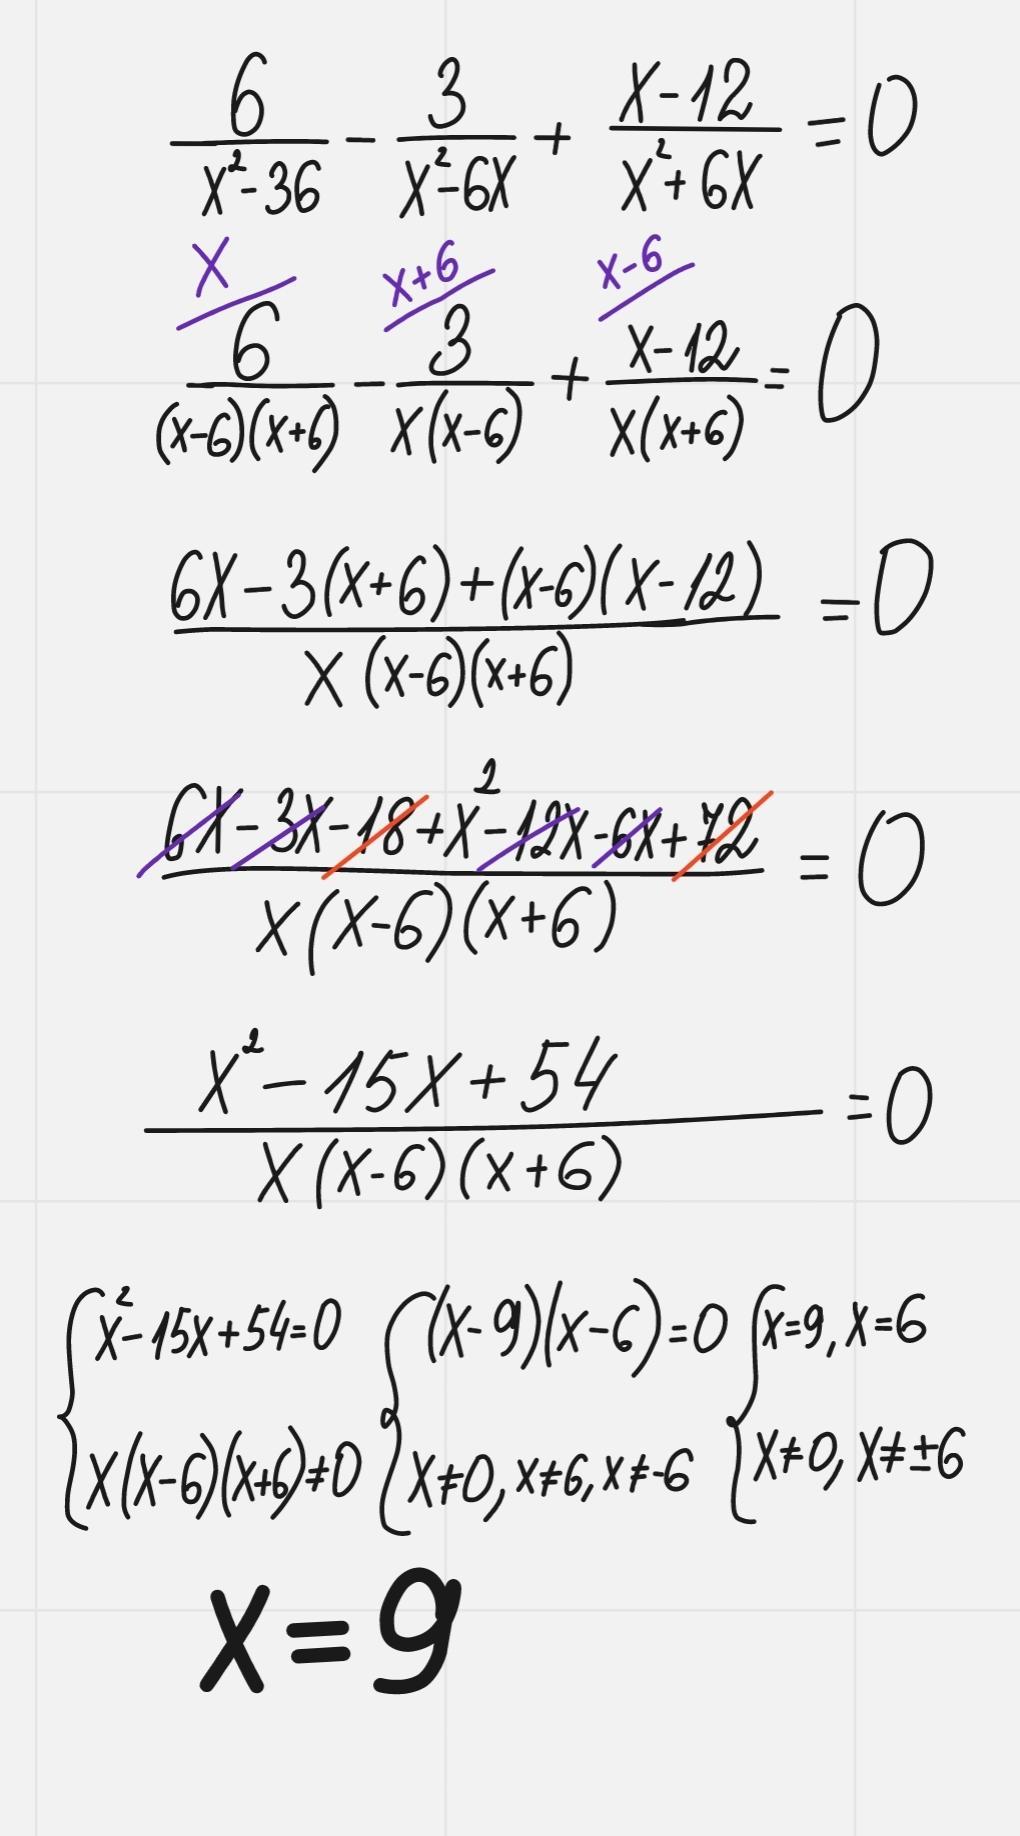 6/(x²-36) - 3/(x²-6x) + (x-12)/(x²+6x) = 0
x x+6 x-6
6/((x-6)(x+6)) - 3/(x(x-6)) + (x-12)/(x(x+6)) = 0
(6x-3(x+6)+(x-6)(x-12))/(x(x-6)(x+6)) = 0
(6x-3x-18+x²-12x-6x+72)/(x(x-6)(x+6)) = 0
(x²-15x+54)/(x(x-6)(x+6)) = 0
{ x²-15x+54=0 { (x-9)(x-6)=0 { x=9, x=6
x(x-6)(x+6)≠0 x≠0, x≠6, x≠-6 x≠0, x≠±6
x=9